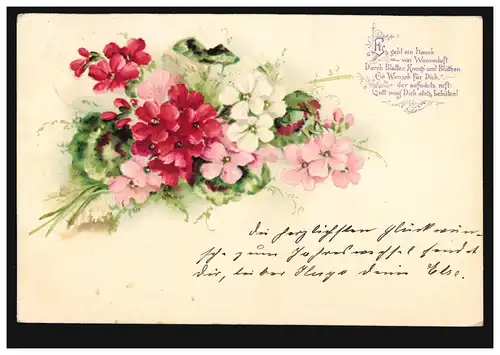 Es geht ein Hauch
von Wonneduft
Durch Blätter, Knosp' und Blüthen
Ein Wunsch für Dich,
der aufwärts ruft:
Gott mög Dich stets behüten!
Die herzlichsten Glückwün-
sche zum Jahreswechsel sendet
Dir, lieber Hugo deine Else.